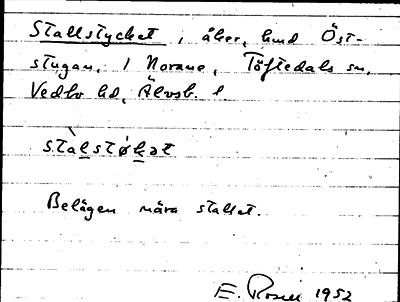 Stallstycket, åker, hmd Öst-
stugan, 1 Norane, Töftedals sn,
Vedbo hd, Älvsb. l.
stàlstø̀kət
Belägen nära stallet.
E. Rosell 1952